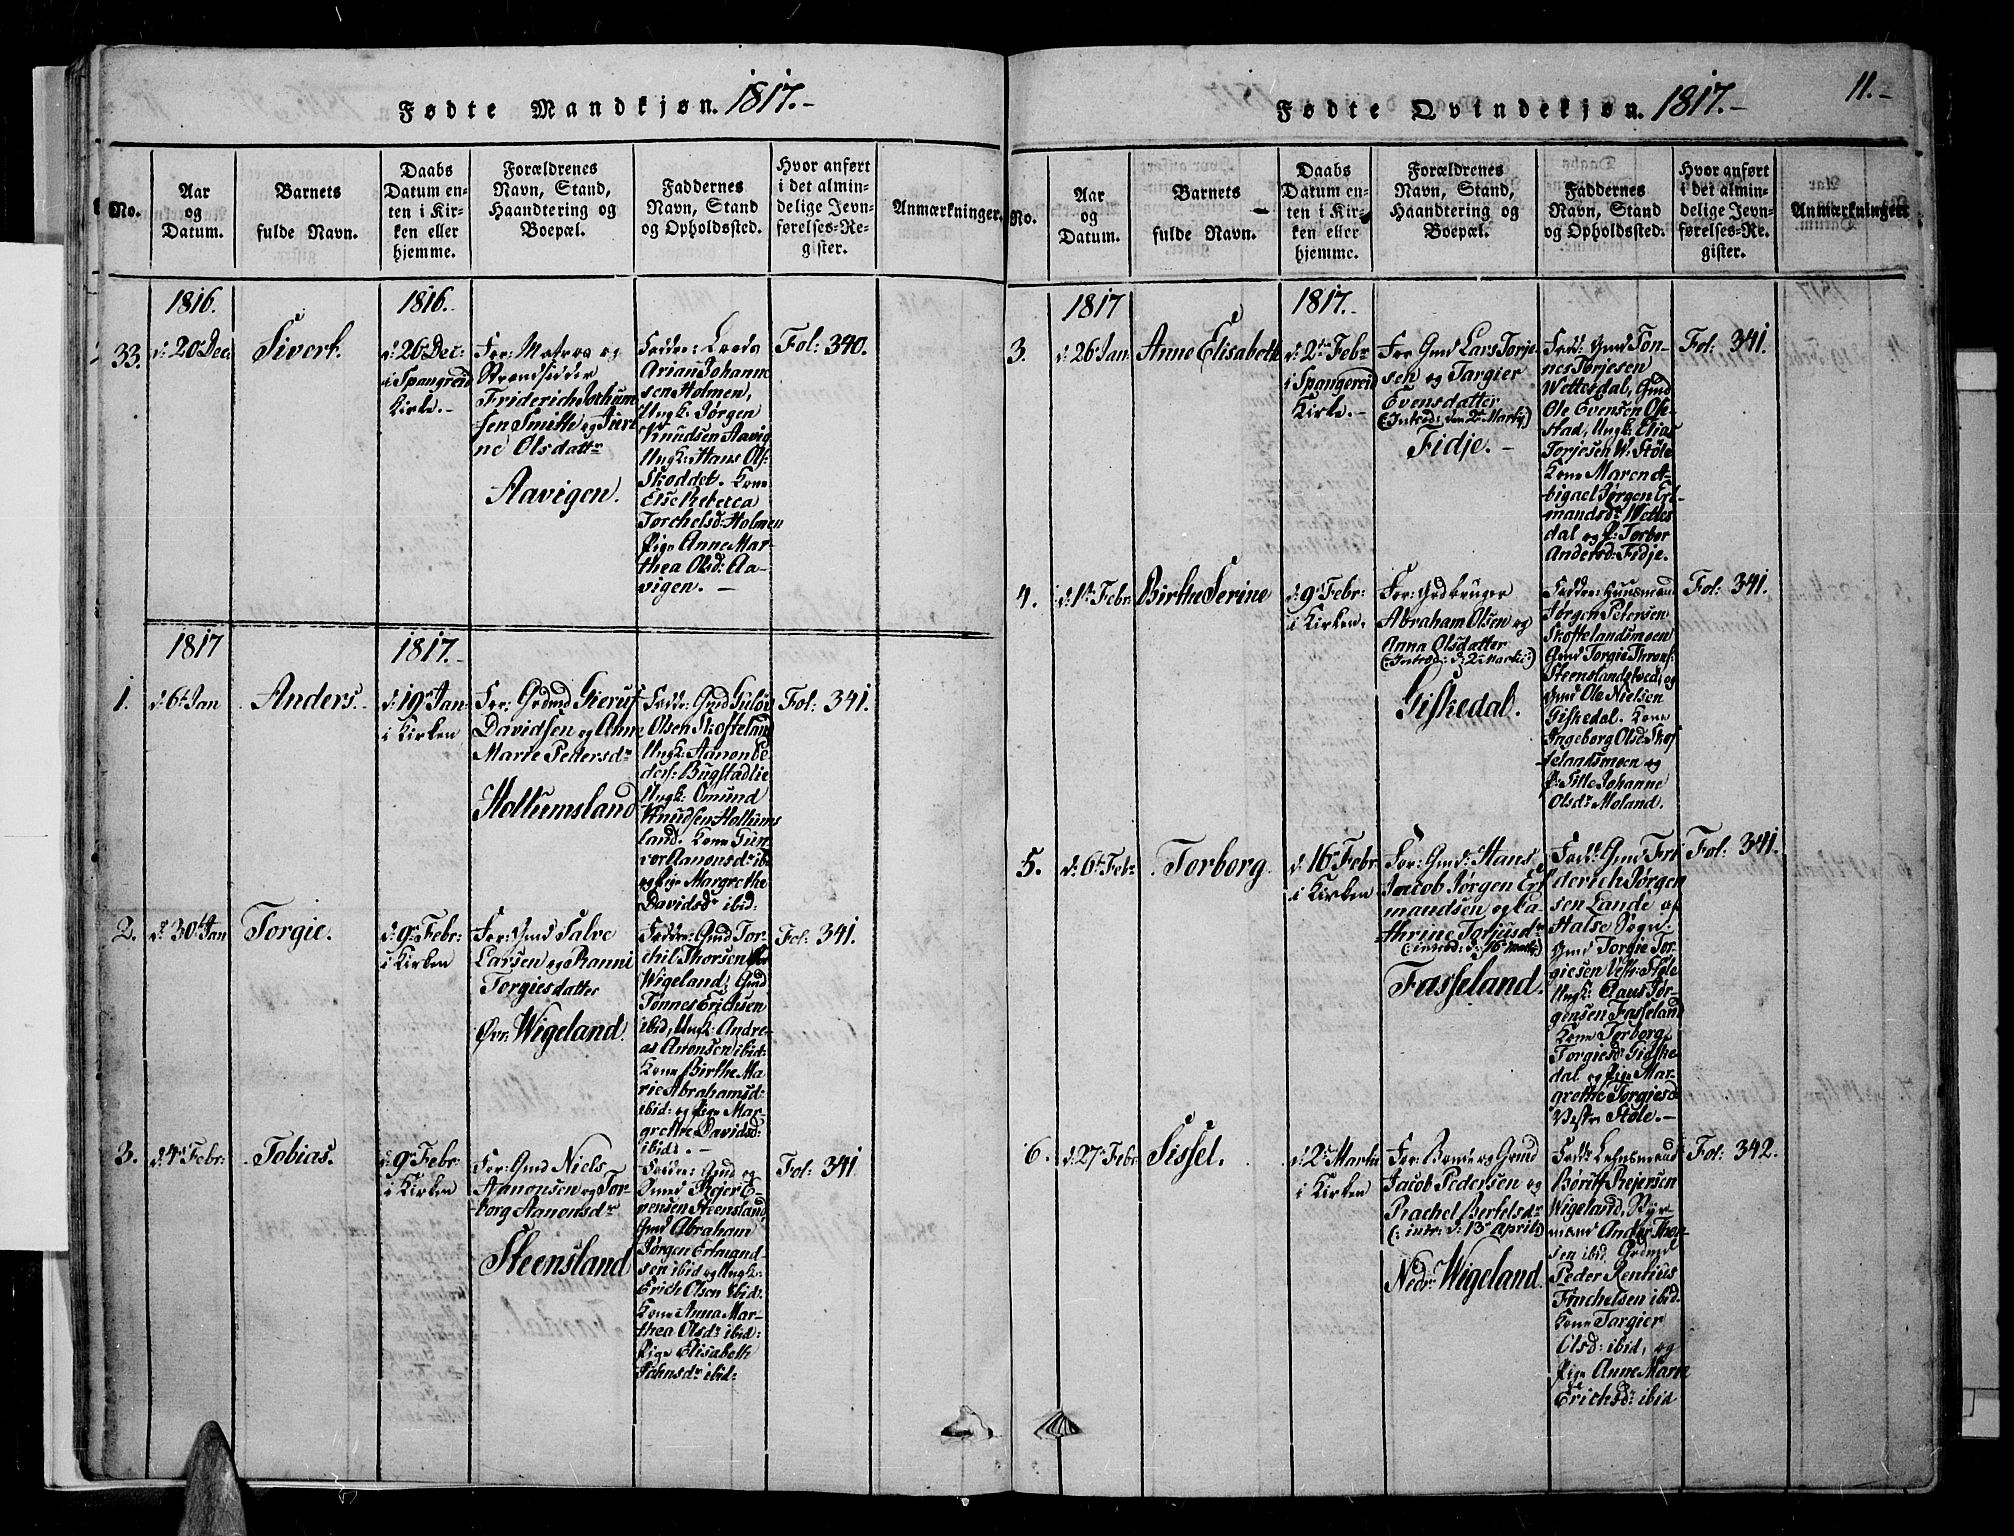 Fødte Mandkjøn. 1817.-
No.
Aar
og
Datum.
Barnets
fulde Navn.
Daabs
Datum en-
ten i Kir-
ken eller
hjemme.
Forældrenes
Navn, Stand,
Haandtering og
Boepæl.
Faddernes
Navn, Stand
og Opholdssted.
Hvor anført
i det almin-
delige Jevn-
førelses-Re-
gister.
Anmærkninger.
1816.
1816.
33.
d: 20de Dec:
Sivert.
d: 26de Dec:
i Spangreid
Kirke.-
For: Matros og
Strandsidder
Friderich Jochum
sen Smith og
ne Olsdattr
Aavigen.
Faddr:
Arian Johanne
sen Holmen,
Ungk: Jørgen
Knudsen Aavig
Ungk: Hans Ols:
Skoddet. Kone
Else Rebecca
Torchelsd: Holmen
Pige Anne Mar-
thea Olsd: Aa-
vigen. -
Fol: 340.
1817
1817.
1.
d: 6te Jan
Anders.
d: 19de Jan
i Kirken
For: Grdmd Gieruf
Davidsen og Anne
Marie Pedersdr
Hollumsland
Faddr: Gmd Guløv
Olsen Skofteland
Ungk: Aanon Pe
ders: Bugstadlie
Ungk: Omund
Knudsen Hollums
land. Kone Gun
vor Aanonsdr ib:
og Pige Margrethe
Davidsdr ibid:
Fol: 341.
2.
d: 30te Jan
Torgie.
d: 9de Febr:
i Kirken
For: Gmd Salve
Larsen og Ranni
Torgiesdatter
Øvr: Wigeland.
Faddr: Gmd Tor-
chil Thorsen
Wigeland, Gmd
Tønnes Erichsen
ibid, Ungk Andre-
as Anonsen ibid:
Kone Birthe Ma
rie Abrahamsd:
ibid: og Pige Mar-
grethe Davidsd:
ibid: . -
Fol: 341.
3.
d: 4de Febr:
Tobias.
d: 9de Febr:
i Kirken
For: Gmd Niels
Aanonsen og Tor-
borg Aanonsdr
Steensland
Faddr: Gmd og
Rejer E-
vensen Steensland,
Gmd Abraham
Jørgen Erlmand
sen ibid og Ungk:
Erich Olsen ibid:
Kone Anna Mar-
thea Olsdr ibid:
Pige Elisabeth
Jahnsdr ibid:
Fol: 341.
Fødte Qvindekjøn. 1817.-
11.-
No.
Aar
og
Datum.
Barnets
fulde Navn.
Daabs
Datum en-
ten i Kir-
ken eller
hjemme.
Forældrenes
Navn, Stand,
Haandtering og
Boepæl.
Faddernes
Navn, Stand
og Opholdssted.
Hvor anført
i det almin-
delige Jevn-
førelses-Re-
gister.
Anmærkninger
1817
1817.
3.
d: 26 Jan:
Anne Elisabeth
d: 2den Febr
i Spangereid
Kirke. -
For Gmd Lars Torje
sen og Targier
Evensdatter
(: Introd: den 2den Martij)
Fidje. -
Faddr: Gmd Tøn-
nes Torjesen
Wettesdal, Gmd
Ole Evensen Ofte-
stad, Ungk: Elias
Torjesen W. Støle
Kone Maren A-
bigael Jørgen Erl-
mandsdr Wettes
dal og P: Torbor
Andersd: Fidje.
Fol: 341.
4.
d: 1ste Febr:
Birthe Serine
d: 9de Febr:
i Kirken.
For: Grdbruger
Abraham Olsen og
Anna Olsdatter
(: Introd: d: 2den Martii:)
Giskedal.
Faddr: Huusmand
Jørgen Petersen
Skoftelandsmoen
Gmd Torgie Throns:
Steenslandsqved, og
Gmd Ole Nielsen
Giskedal. Kone
Ingeborg Olsd: Skof
telandsmoen og
P: Sille Johanne
Olsdr Moland.
Fol: 341.
5.
d: 6te Febr
Torborg.
d: 16de Febr
i Kirken
For: Gmd: Hans
Jacob Jørgen Erl
mandsen og Ca
thrine Torjusdr
(: introd: d: 16de Martij)
Fasseland.
Faddr: Gmd Fri
derich Jørgen
sen Lande af
Halse Sogn.
Gmd Torgie Tor-
giesen Vest: Støle
Ungk: Claus Jør-
gensen Fasseland
Kone Torborg
Torgiesdr Gidske
dal og Pige Mar-
grethe Torgiesd
Vestr Støle. -
Fol: 341.
6.
d: 27de Febr
Sissel.
d: 2den Martii
i Kirken
For: Bonde og Gmd
Jacob Pedersen og
Rachel Bertelsdr
(: intr: d: 13de april:)
Nedr: Wigeland.
Faddr: Lehnsmand
Børild Rejersen
Wigeland, Styr
mand Anders Thor-
sen ibid,
Peder Rentius
Trochelsen ibid.
Kone Targier
Olsd: ibid, og
Pige Anne Marie
Erichsd: ibid
Fol: 342.